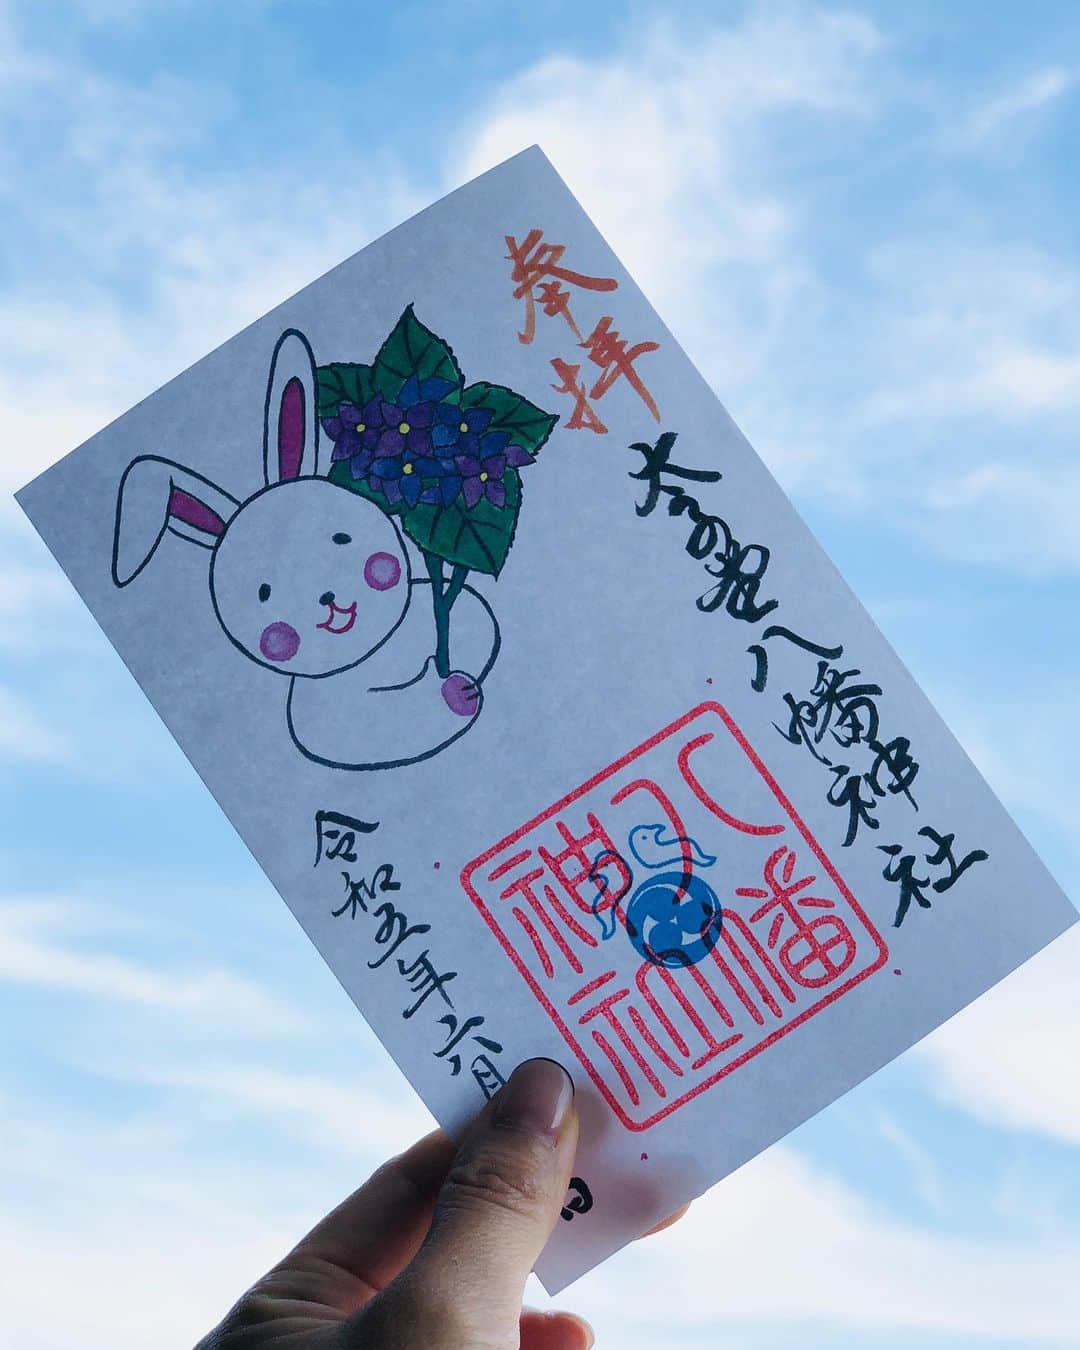 奉拝
太子堂八幡神社
八幡
神社
令和五年六月
日